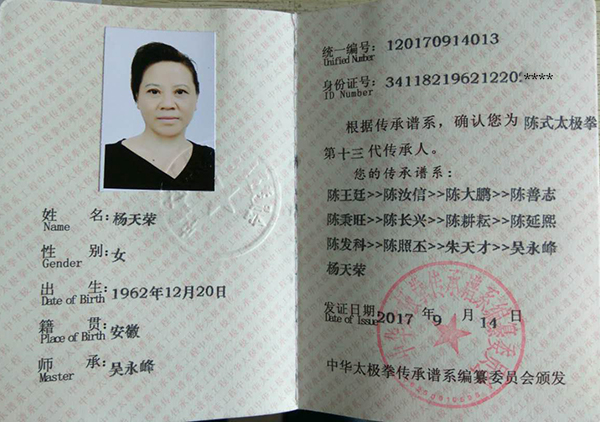 姓名：杨天荣
Name
性别：女
Gender
出生：1962年12月20日
Date of Birth
籍贯：安徽
Place of Birth
师承：吴永峰
Master
统一编号：120170914013
Unified Number
身份证号：34118219621220****
ID Number
根据传承谱系，确认您为陈式太极拳
第十三代传承人。
您的传承谱系：
陈王廷>>陈汝信>>陈大鹏>>陈善志
陈秉旺>>陈长兴>>陈耕耘>>陈延熙
陈发科>>陈照丕>>朱天才>>吴永峰
杨天荣
发证日期：2017年9月14日
Date of Issue
中华太极拳传承谱系编纂委员会颁发
中华太极拳传承谱系编纂委员会